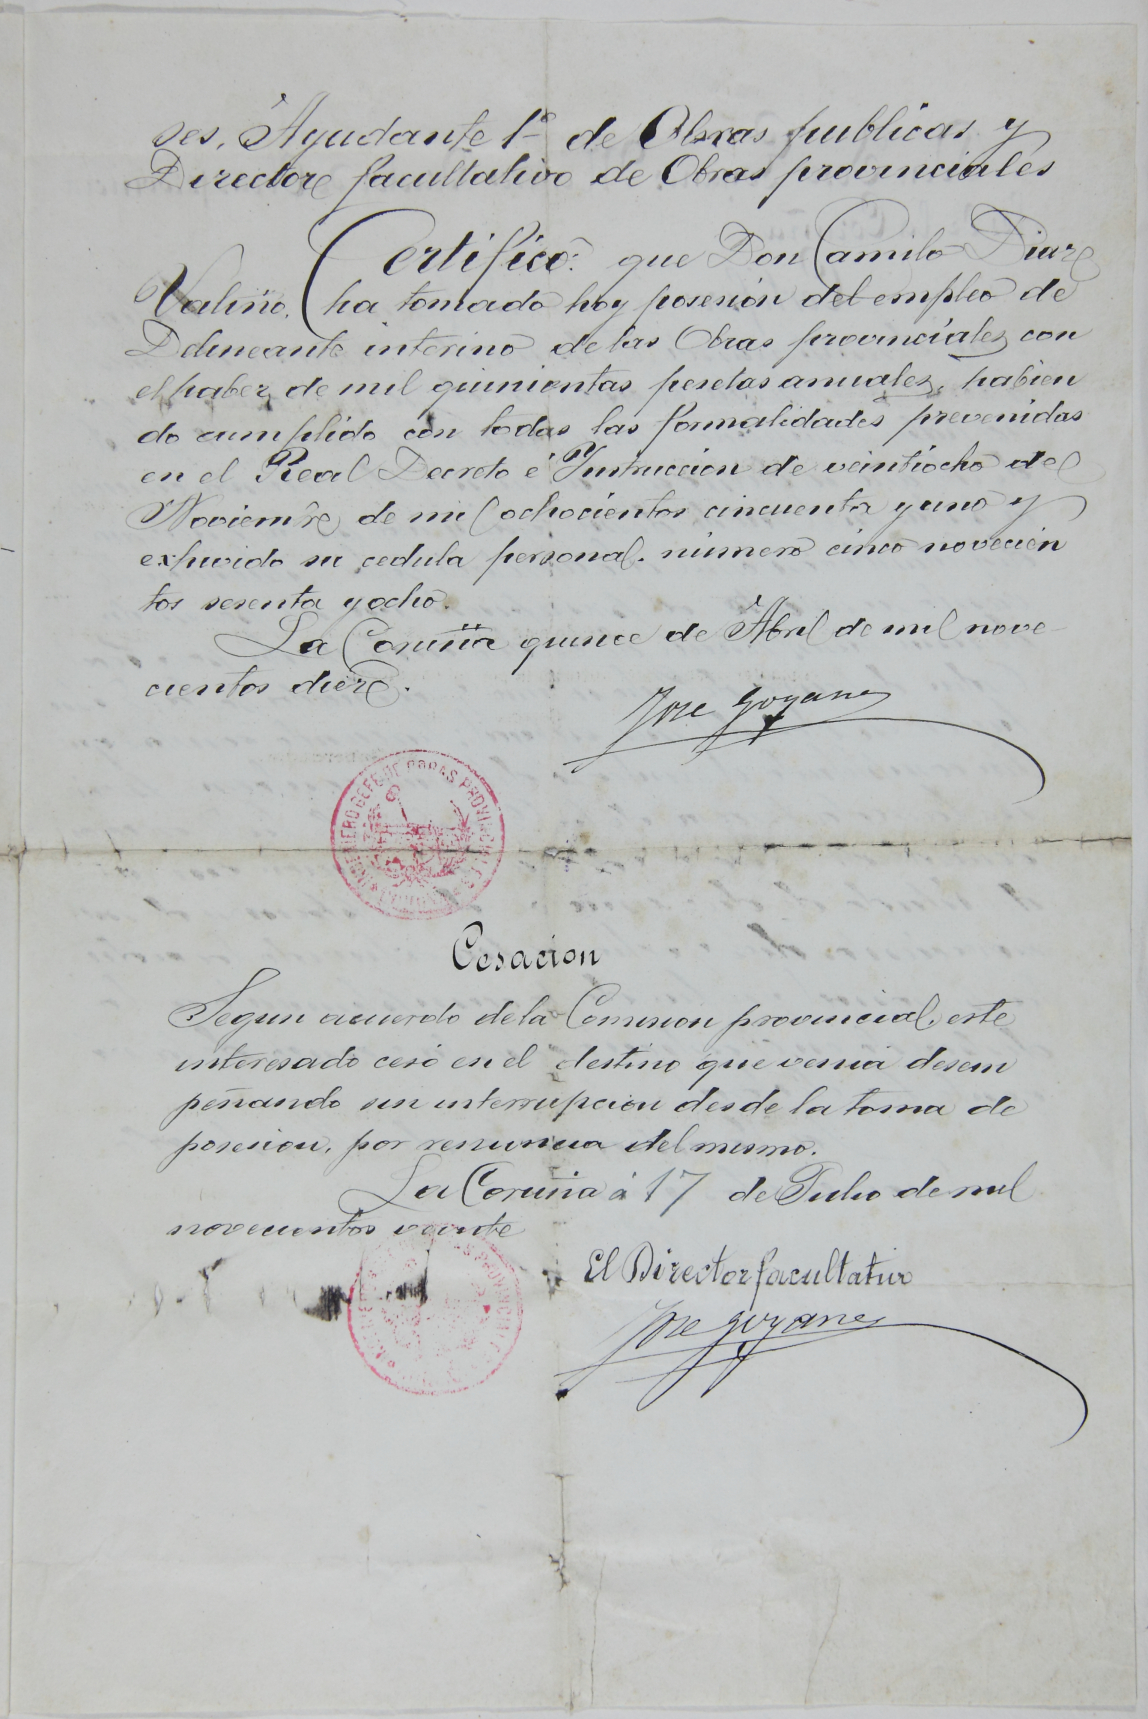 ses, Ayudante 1º de Obras publicas y
Director facultativo de Obras provinciales
Certifico: que Don Camilo Diaz
Valiño, ha tomado hoy posesión del empleo de
Delineante interino de las Obras provinciales, con
el haber de mil quinientas pesetas anuales, habien
do cumplido con todas las formalidades prevenidas
en el Real Decreto é Instruccion de veintiocho de
Noviembre de mil ochocientos cincuenta y uno y
exhivido su cedula personal. número cinco novecien
tos sesenta y ocho.
La Coruña quince de Abril de mil nove-
cientos diez.
Jose Goyanes
INGENIERO GEFE DE OBRAS PROVINCIALES
Cesacion
Segun acuerdo de la Comision provincial, este
interesado cesó en el destino que venia desem
peñando sin interrupcion desde la toma de
posesion, por renuncia del mismo.
La Coruña á 17 de Julio de mil
novecientos veinte
El Director facultativo
Jose Goyanes